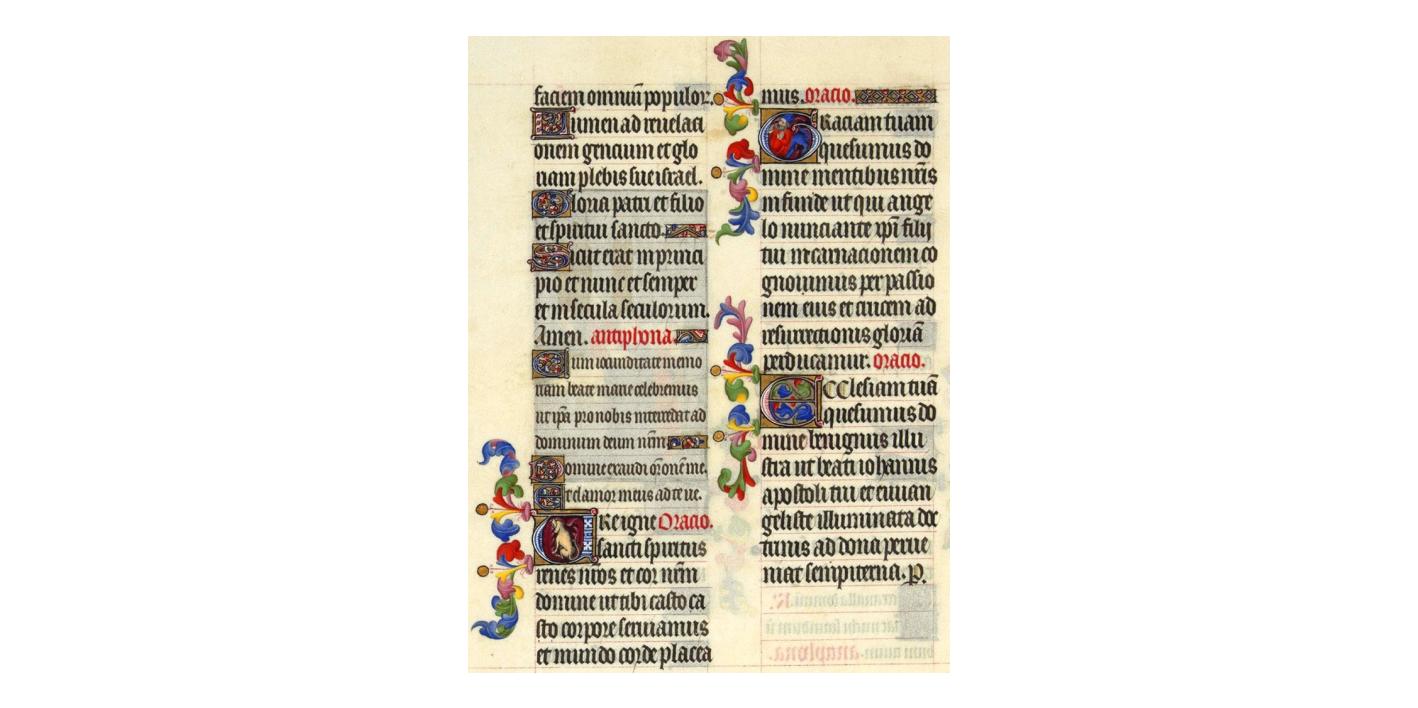 faciem omniū populoꝝ.
Lumen ad reuelaci
onem gencium et glo
riam plebis sue israel.
Gloria patri et filio
et spiritui sancto.
Sicut erat in princi
pio et nunc et semper
et in secula seculorum.
Amen. antiphona.
Cum iocunditate memo
riam beate marie celebremus
ut ip̄a pro nobis intercedat ad
dominum deum nr̄m
Domine exaudi or̄onē me.
Et clamor meus ad te ue.
Ure igne Oracio.
sancti spiritus
renes nr̄os et cor nr̄m
domine ut tibi casto ca
sto corpore seruiamus
et mundo corde placea
mus. oracio.
Graciam tuam
quesumus do
mine mentibus nr̄is
infunde ut qui ange
lo nunciante xp̄i filij
tui incarnacionem co
gnouimus per passio
nem eius et crucem ad
resurrectionis gloriā
perducamur. oracio.
ECClesiam tuā
quesumus do
mine benignus illu
stra ut beati iohannis
apostoli tui et euuan
geliste illuminata doc
trinis ad dona perue
niat sempiterna. P.